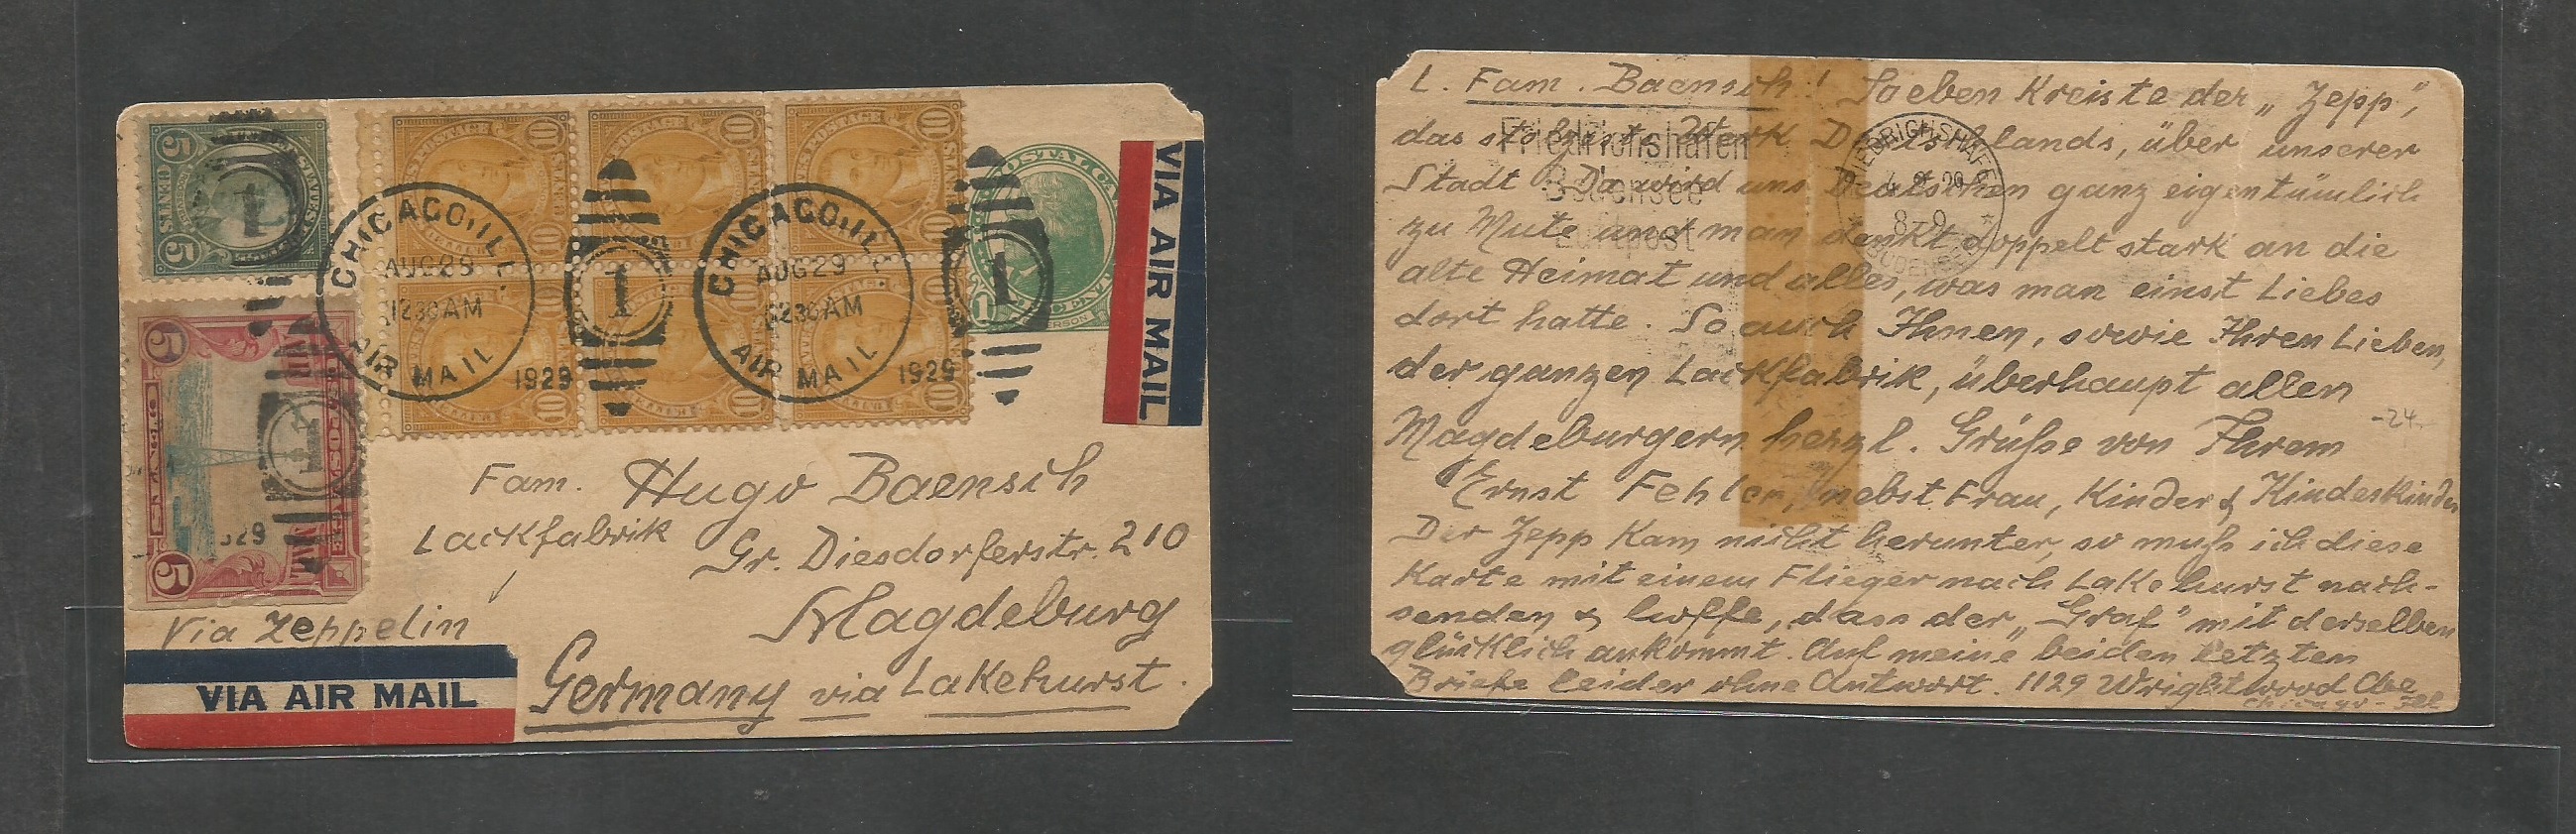 CHICAGO, ILL.
AUG 29
12 30 AM
AIR MAIL
1929
1
CHICAGO, ILL.
AUG 29
12 30 AM
AIR MAIL
1929
1
VIA AIR MAIL
Fam. Hugo Baensch
Lackfabrik
Gr. Diesdorferstr. 210
Magdeburg
Via Zeppelin
Germany via Lakehurst.
VIA AIR MAIL
L. Fam. Baensch! Soeben kreiste der „Zepp",
das stolzeste Werk Deutschlands, über unserer
Stadt. Da wird uns Deutschen ganz eigentümlich
zu Mute und man denkt doppelt stark an die
alte Heimat und alles, was man einst Liebes
dort hatte. So auch Ihnen, sowie Ihren Lieben,
der ganzen Lackfabrik, überhaupt allen
Magdeburgern herzl. Grüße von Ihrem
Ernst Fehler, nebst Frau, Kinder & Kindeskinder
Der Zepp kam nicht herunter, so muß ich diese
Karte mit einem Flieger nach Lakehurst nach-
senden & hoffe, dass der „Graf" mit derselben
glücklich ankommt. Auf meine beiden letzten
Briefe leider ohne Antwort. 1129 Wrightwood Ave
Chicago - Ill
Friedrichshafen
Bodensee
Luftpost
FRIEDRICHSHAFEN
4.9.29
8-9
BODENSEE
-24